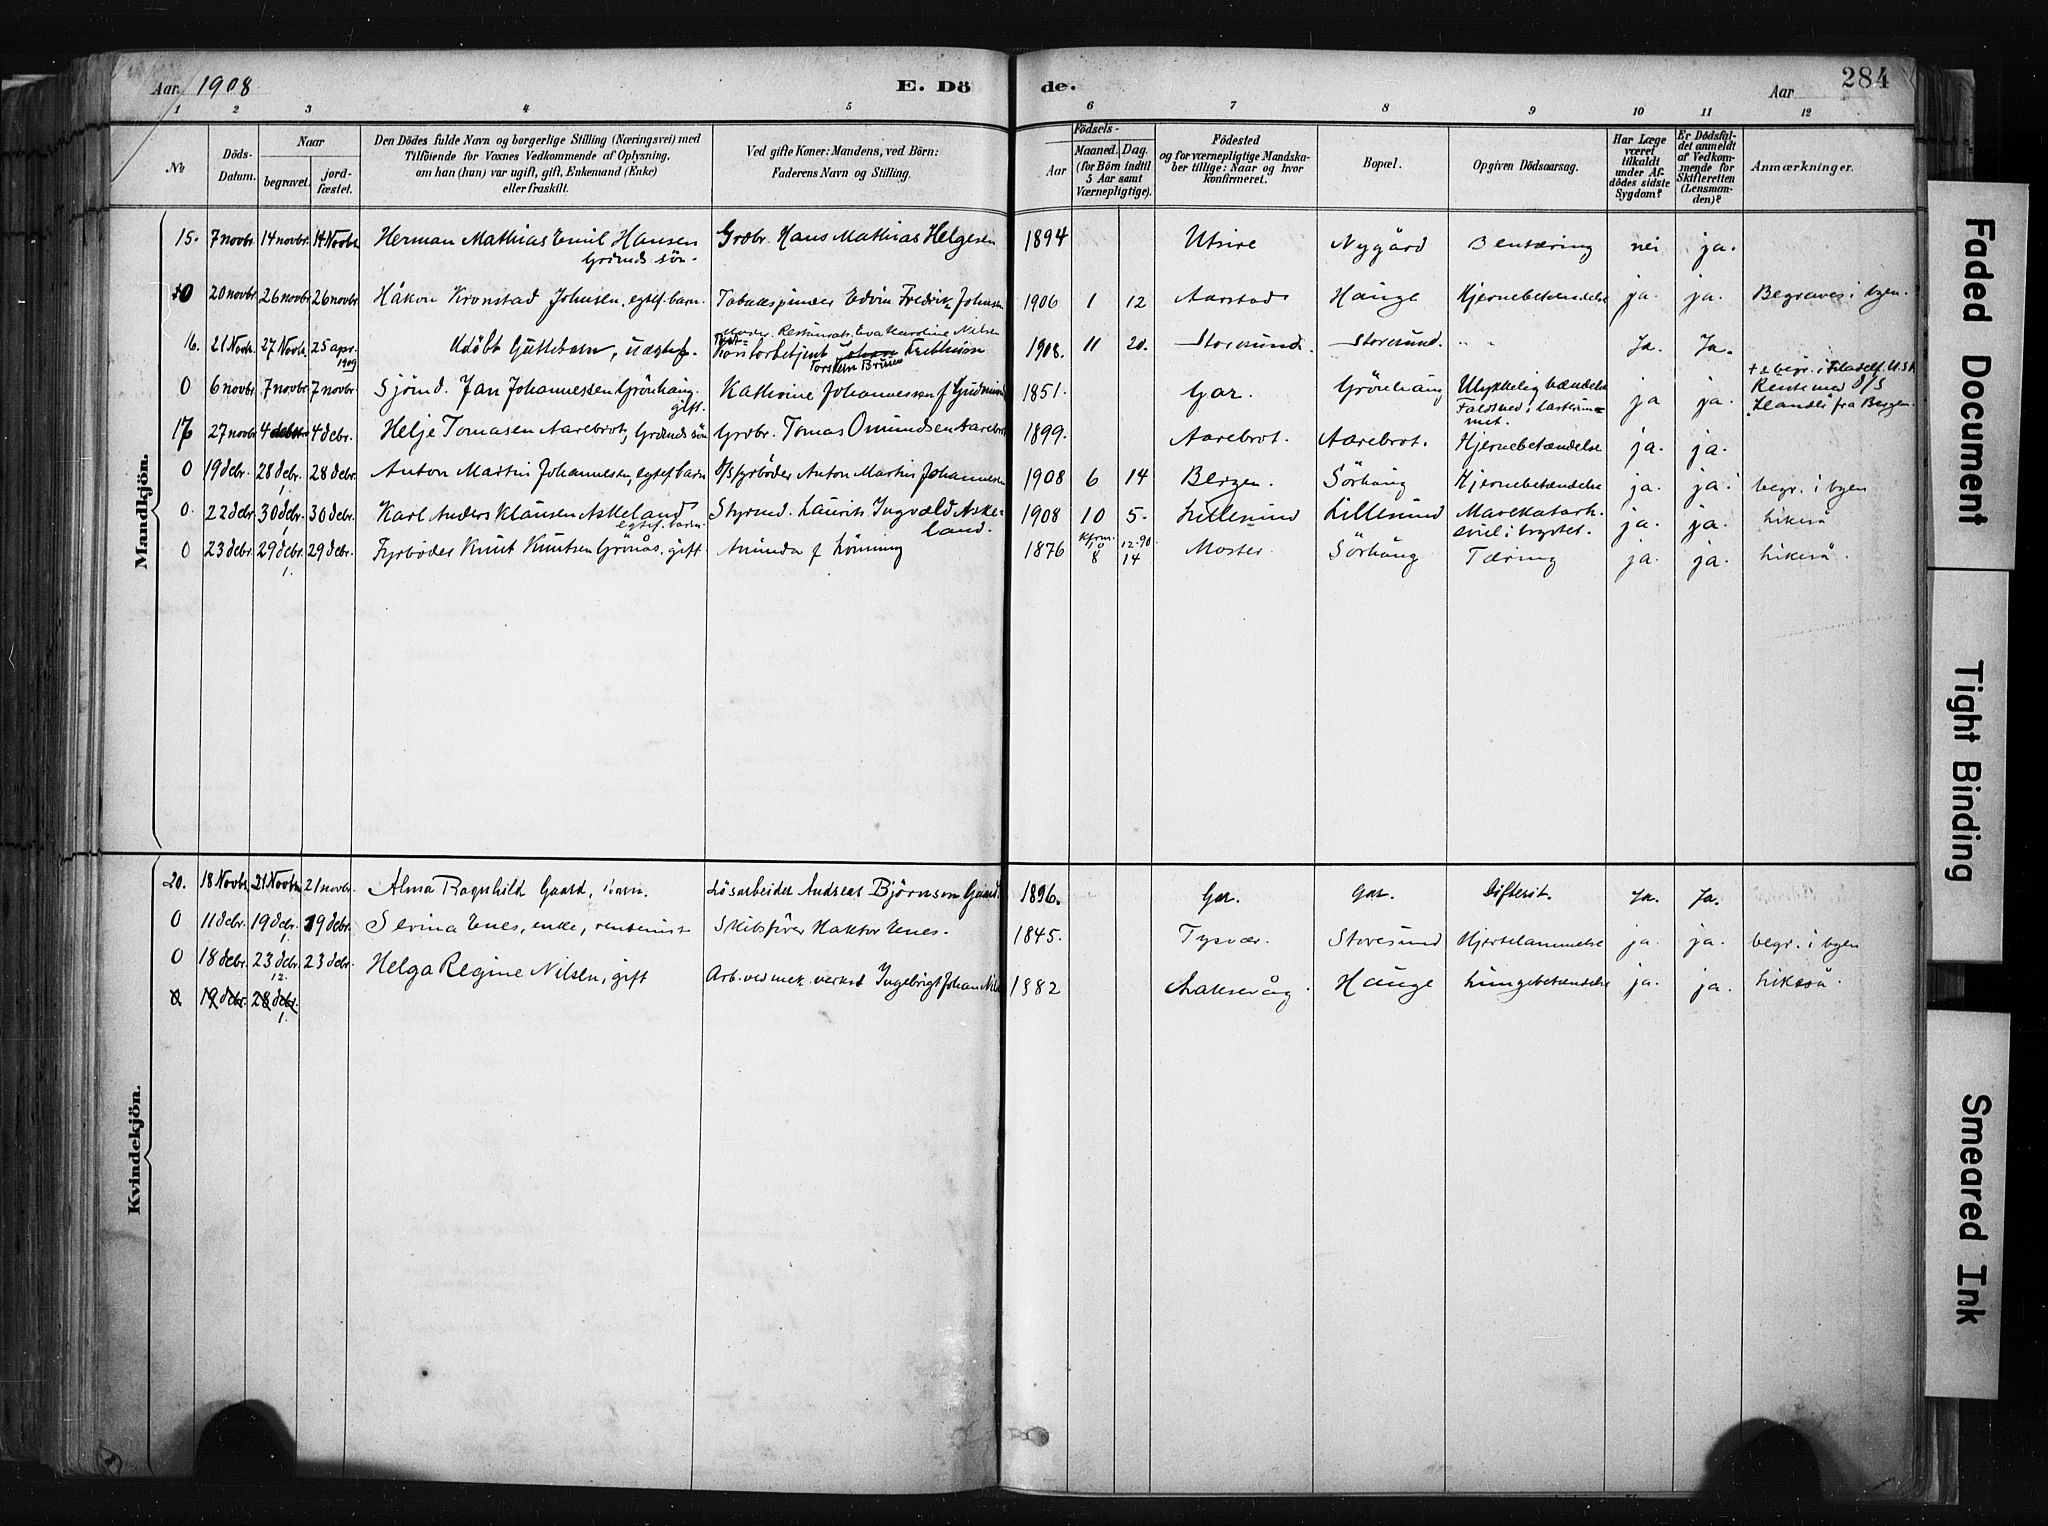 Aar 1908 E. Döde. Aar 284
1 2 3 4 5 6 7 8 9 10 11 12
No
Döds-Datum.
Naar
begravet.
jord-fæstet.
Den Dödes fulde Navn og borgerlige Stilling (Næringsvei) med
Tilföiende for Voxnes Vedkommende af Oplysning,
om han (hun) var ugift, gift, Enkemand (Enke)
eller fraskilt.
Ved gifte Koner: Mandens, ved Börn:
Faderens Navn og Stilling.
Födsels-
Aar
Maaned. Dag.
(for Börn indtil
5 Aar samt
Værnepligtige).
Födested
og for værnepligtige Mandska-
ber tillige: Naar og hvor
konfirmeret.
Bopæl.
Opgiven Dödsaarsag.
Har Læge
været
tilkaldt
under Af-
dödes sidste
Sygdom?
Er Dödsfal-
det anmeldt
af Vedkom-
mende for
Skifteretten
(Lensman-
den)?
Anmærkninger.
Mandkjön.
15. 7 novbr. 14 novbr. 14 Novbr. Herman Mathias Emil Hansen Grdbr. Hans Mathias Helgesen 1894 Utsire Nygård Bentæring nei ja.
Grdmds sön.
0 20 novbr. 26 novbr. 26 novbr. Håkon Kronstad Johnsen, egtef. barn. Tobakspinder Edvin Fredrik Johnsen 1906 1 12 Aarstad Hauge Hjernebetændelse ja. ja. Begraves i byen.
16. 21 Novb. 27 Novb. 25 apr. 1909 Udöbt Guttebarn, uægtef. 1908. 11 20. Storesund. Storesund. " " Ja. Ja.
Torstein
0 6 novbr. 7 novbr. 7 novbr. Sjömd. Jan Johannessen Grönhaug, gift. Kathrine Johannessen f. 1851. Gar. Grönhaug Ulykkelig hændelse ja ja.
fra Bergen.
17 27 novbr. 4 debr. Helje Tomasen Aarebrot, Grdmds sön Grdbr. Tomas Omundsen Aarebrot 1899. Aarebrot. Aarebrot. Hjernebetændelse ja. ja.
0 19 debr. 28 debr. 28 debr. Anton Martin Johannessen, egtef. barn D/S fyrböder Anton Martin Johannessen 1908 6 14 Bergen. Sörhaug Hjernebetændelse ja. ja. begr. i byen
0. 22 debr. 30 debr. 30 debr. Karl Anders Klausen Askeland Styrmd. Laurits Ingvald Aske-
egtef. barn. land. 1908 10 5. Lillesund Lillesund ja. ja. Likeså
0 23 debr. 29 debr. 29 debr. Fyrböder Knut Knutsen Grönås, gift. Amunda f. Lönning 1876 8 14 Moster Sörhaug Tæring ja. ja. Likeså.
Kvindekjön.
20. 18 Novbr. 21 Novbr. 21 novbr. Alma Ragnhild Gaard, barn. Lösarbeider Andreas Björnson Gaard. 1896. Gar. Gar. Difterit. Ja. Ja.
0 11 debr. 19 debr. 19 debr. Serina Enes, enke, rentenist Skibsförer Haktor Enes. 1845. Tysvær. Storesund Hjertelammelse ja. ja. begr. i byen
0 18 debr. 23 debr. 23 debr. Helga Regine Nilsen, gift Arb. ved mek. verkst. Ingebrigt Johan Nils 1882 Laksevåg. Hauge Lungebetændelse ja. ja. Likeså.
0 19 debr. 28 debr.
Faded Document
Tight Binding
Smeared Ink